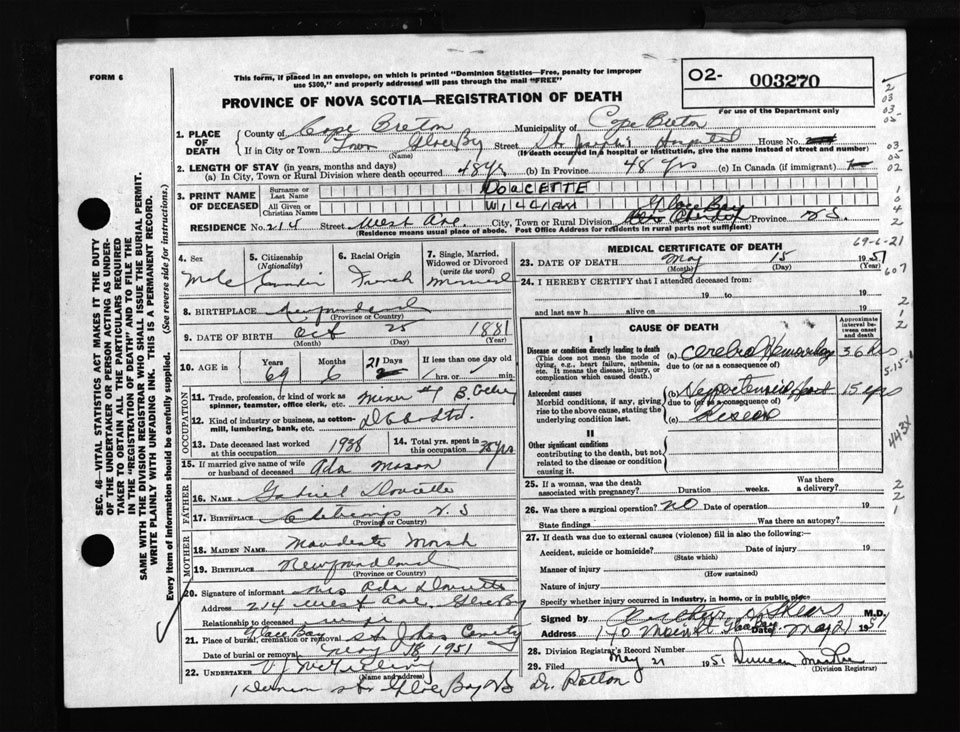 FORM 6
This form, if placed in an envelope, on which is printed "Dominion Statistics—Free, penalty for improper
use $300," and properly addressed will pass through the mail "FREE"
O2- 003270
For use of the Department only
PROVINCE OF NOVA SCOTIA—REGISTRATION OF DEATH
1. PLACE OF DEATH
County of Cape Breton Municipality of Cape Breton
If in City or Town Town Glace Bay Street St. Joseph's Hospital House No.
(Name) (If death occurred in a hospital or institution, give the name instead of street and number)
2. LENGTH OF STAY (in years, months and days)
(a) In City, Town or Rural Division where death occurred 48 yrs (b) In Province 48 yrs (c) In Canada (if immigrant)
3. PRINT NAME OF DECEASED
Surname or Last Name DOUCETTE
All Given or Christian Names WILLIAM
Glace Bay
RESIDENCE No. 214 Street West Ave. City, Town or Rural Division Province N.S.
(Residence means usual place of abode. Post Office Address for residents in rural parts not sufficient)
4. Sex
Male
5. Citizenship
(Nationality)
Canadian
6. Racial Origin
French
7. Single, Married,
Widowed or Divorced
(write the word)
Married
8. BIRTHPLACE Newfoundland
(Province or Country)
9. DATE OF BIRTH Oct 25 1881
(Month) (Day) (Year)
10. AGE in
Years Months Days If less than one day old
69 6 21 hrs. or min.
OCCUPATION
11. Trade, profession, or kind of work as
spinner, teamster, office clerk, etc. Miner
12. Kind of industry or business, as cotton-
mill, lumbering, bank, etc.
13. Date deceased last worked
at this occupation 1938
14. Total yrs. spent in
this occupation
15. If married give name of wife
or husband of deceased Ada Mason
FATHER
16. NAME Gabriel Doucette
17. BIRTHPLACE Cheticamp N.S
(Province or Country)
MOTHER
18. MAIDEN NAME
19. BIRTHPLACE Newfoundland
(Province or Country)
20. Signature of informant Mrs Ada Doucette
Address 214 West Ave. Glace Bay
Relationship to deceased wife
21. Place of burial, cremation or removal Glace Bay St Johns Cemetry
Date of burial or removal May 18 1951
22. UNDERTAKER
(Name and address)
St Glace Bay NS
Dr. Patton
MEDICAL CERTIFICATE OF DEATH
69-6-21
23. DATE OF DEATH May 15 1951
(Month) (Day) (Year)
607
24. I HEREBY CERTIFY that I attended deceased from:
19 to 19
and last saw h alive on 19
CAUSE OF DEATH
Approximate
interval be-
tween onset
and death
I
Disease or condition directly leading to death
(This does not mean the mode of
dying, e.g., heart failure, asthenia,
etc. It means the disease, injury, or
complication which caused death.)
(a) Cerebro Hemorrhage 36 hrs
due to (or as a consequence of)
Antecedent causes
Morbid conditions, if any, giving
rise to the above cause, stating the
underlying condition last.
(b) Hypertensive heart 15 yrs
due to (or as a consequence of)
(c) Disease
II
Other significant conditions
contributing to the death, but not
related to the disease or condition
causing it.
443X
25. If a woman, was the death
associated with pregnancy? Duration weeks. Was there
a delivery?
26. Was there a surgical operation? NO Date of operation 19
State findings Was there an autopsy?
27. If death was due to external causes (violence) fill in also the following:—
Accident, suicide or homicide? Date of injury 19
(State which)
Manner of injury
(How sustained)
Nature of injury
Specify whether injury occurred in industry, in home, or in public place
Signed by Arthur M.D.
Address 170 Main St Glace Bay Date May 21 1951
28. Division Registrar's Record Number
29. Filed May 21 1951 Duncan
(Division Registrar)
SEC. 46—VITAL STATISTICS ACT MAKES IT THE DUTY
OF THE UNDERTAKER OR PERSON ACTING AS UNDER-
TAKER TO OBTAIN ALL THE PARTICULARS REQUIRED
IN THE "REGISTRATION OF DEATH" AND TO FILE THE
SAME WITH THE DIVISION REGISTRAR WHO SHALL ISSUE THE BURIAL PERMIT.
WRITE PLAINLY WITH UNFADING INK. THIS IS A PERMANENT RECORD.
Every item of information should be carefully supplied. (See reverse side for instructions.)